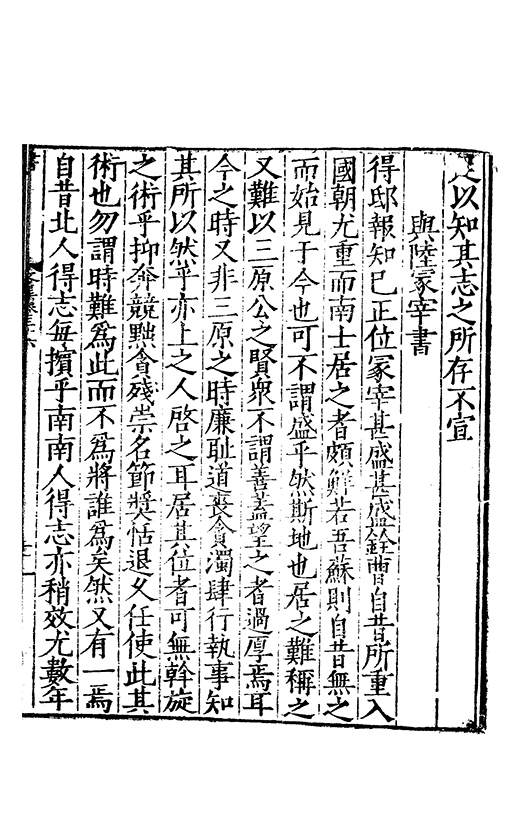 足以知其志之所存不宣
與陸冢宰書
得邸報知已正位冢宰甚盛甚盛銓曹自昔所重入
國朝尤重而南士居之者頗鮮若吾蘇則自昔無之
而始見于今也可不謂盛乎然斯地也居之難稱之
又難以三原公之賢衆不謂善蓋望之者過厚焉耳
今之時又非三原之時廉耻道喪貪濁肆行執事知
其所以然乎亦上之人啓之耳居其位者可無斡旋
之術乎抑奔競黜貪殘崇名節奬恬退久任使此其
術也勿謂時難爲此而不爲將誰爲矣然又有一焉
自昔北人得志每擯乎南南人得志亦稍效尤數年